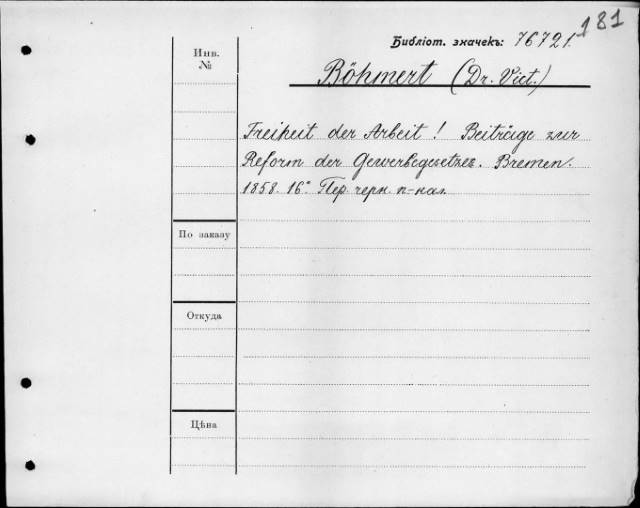 181
Библіот. значекъ: 76721.
Инв.
№
Böhmert (Dr. Vict.)
Freiheit der Arbeit! Beiträge zur
Reform der Gewerbegesetze. Bremen.
1858. 16° Пер. черн. п-кал.
По заказу
Откуда
Цѣна